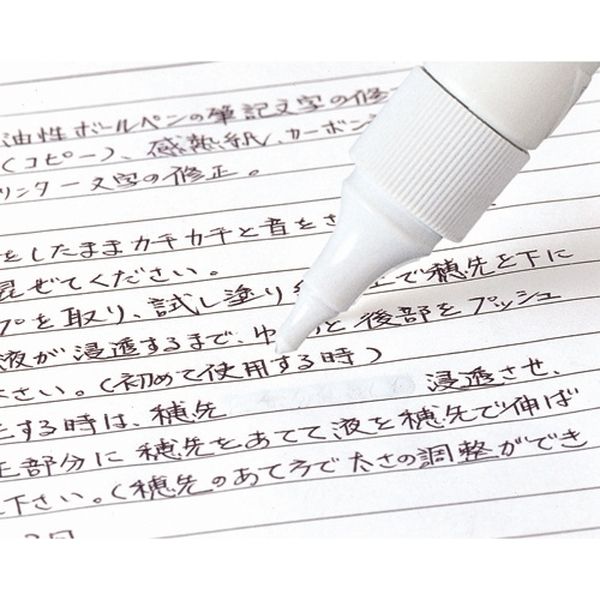 油性ボールペンの筆記文字の修
(コピー)、感熱紙、カーボン
リンター文字の修正。
をしたままカチカチと音をさ
混ぜてください。
プを取り、試し塗り 上で穂先を下に
液が浸透するまで、ゆ と後部をプッシュ
さい。(初めて使用する時)
とする時は、穂先 浸透させ、
正部分に穂先をあてて液を穂先で伸ば
下さい。(穂先のあて方で太さの調整ができ